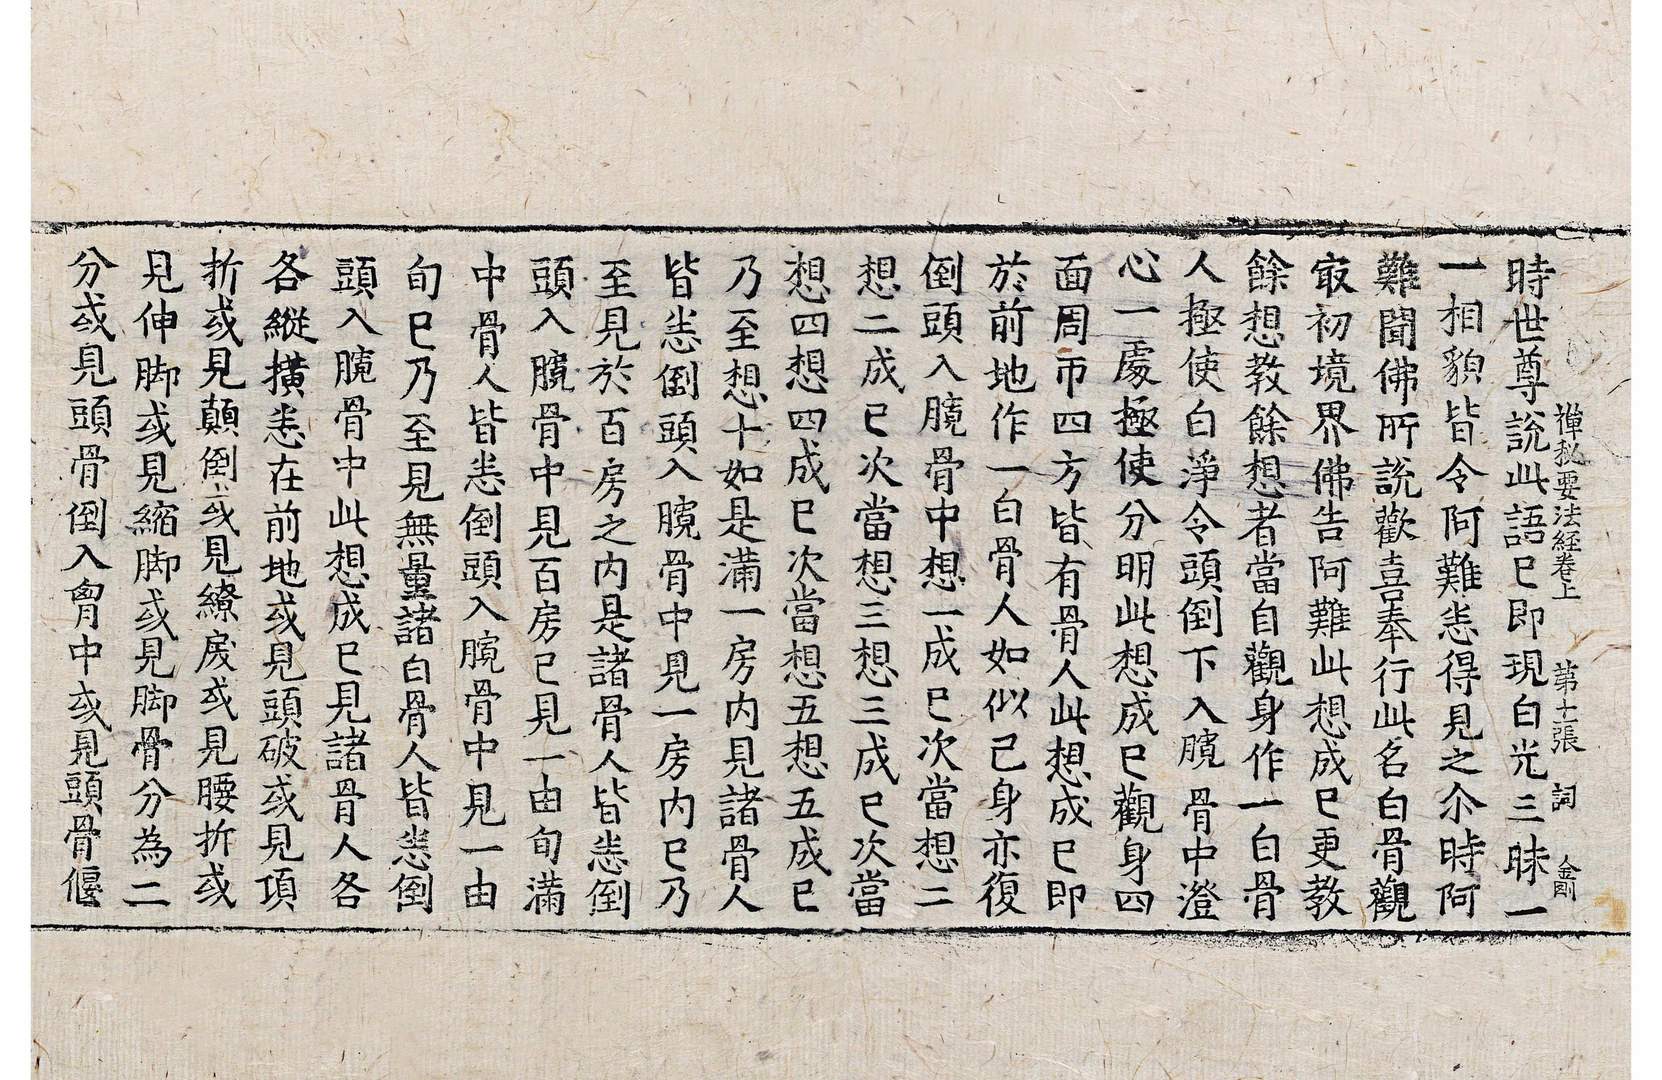 禪秘要法經卷上　第十二張　詞　金剛
時世尊說此語已即現白光三昧一
一相貌皆令阿難悉得見之尒時阿
難聞佛所說歡喜奉行此名白骨觀
冣初境界佛告阿難此想成已更教
餘想教餘想者當自觀身作一白骨
人極使白淨令頭倒下入臗骨中澄
心一處極使分明此想成已觀身四
面周帀四方皆有骨人此想成已即
於前地作一白骨人如似己身亦復
倒頭入臗骨中想一成已次當想二
想二成已次當想三想三成已次當
想四想四成已次當想五想五成已
乃至想十如是滿一房內見諸骨人
皆悉倒頭入臗骨中見一房內已乃
至見於百房之內是諸骨人皆悉倒
頭入臗骨中見百房已見一由旬滿
中骨人皆悉倒頭入臗骨中見一由
旬已乃至見無量諸白骨人皆悉倒
頭入臗骨中此想成已見諸骨人各
各縱橫悉在前地或見頭破或見項
折或見顛倒或見繚戾或見腰折或
見伸脚或見縮脚或見脚骨分為二
分或見頭骨倒入胷中或見頭骨偃